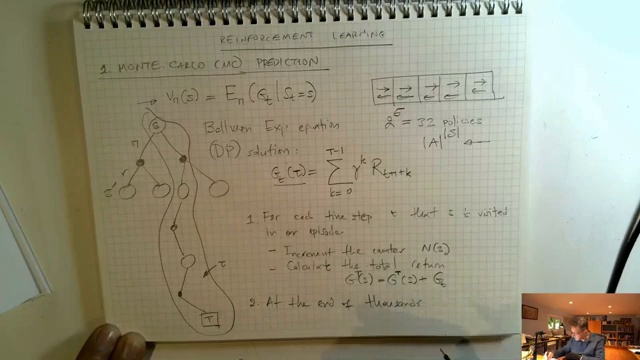 REINFORCEMENT LEARNING
1. MONTE-CARLO (MC) PREDICTION
V_π(s) = E_π (G_t | S_t = s)
2^5 = 32 policies
|A|^|S|
Bellman Exp. equation
(DP) solution:
G_t(τ) = Σ_{k=0}^{T-1} γ^k R_{t+1+k}
1. For each time step t that s is visited
in an episode
- Increment the counter N(s)
- Calculate the total return
G^T(s) = G^T(s) + G_t
2. At the end of thousands
S
π
r
s'
τ
T